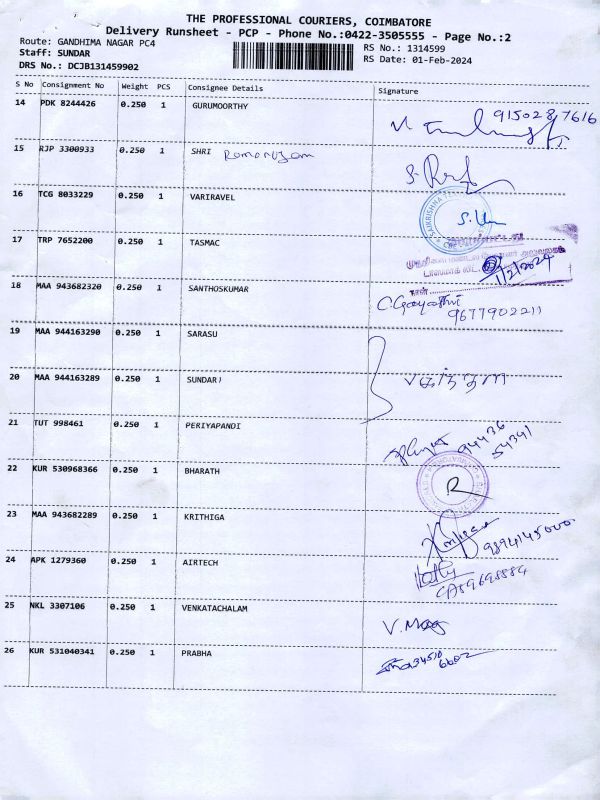 THE PROFESSIONAL COURIERS, COIMBATORE
Delivery Runsheet - PCP - Phone No.:0422-3505555 - Page No.:2
Route: GANDHIMA NAGAR PC4 RS No.: 1314599
Staff: SUNDAR RS Date: 01-Feb-2024
DRS No.: DCJB131459902
S No Consignment No Weight PCS Consignee Details Signature
14 PDK 8244426 0.250 1 GURUMOORTHY 9150287616
15 RJP 3300933 0.250 1 SHRI Ramanujam
16 TCG 8033229 0.250 1 VARIRAVEL
17 TRP 7652200 0.250 1 TASMAC
1/2/2024
18 MAA 943682320 0.250 1 SANTHOSKUMAR C.Gayathri
9677902211
19 MAA 944163290 0.250 1 SARASU
20 MAA 944163289 0.250 1 SUNDARI
21 TUT 998461 0.250 1 PERIYAPANDI 94436
54341
22 KUR 530968366 0.250 1 BHARATH R
23 MAA 943682289 0.250 1 KRITHIGA
9894145000
24 APK 1279360 0.250 1 AIRTECH
25 NKL 3307106 0.250 1 VENKATACHALAM
26 KUR 531040341 0.250 1 PRABHA